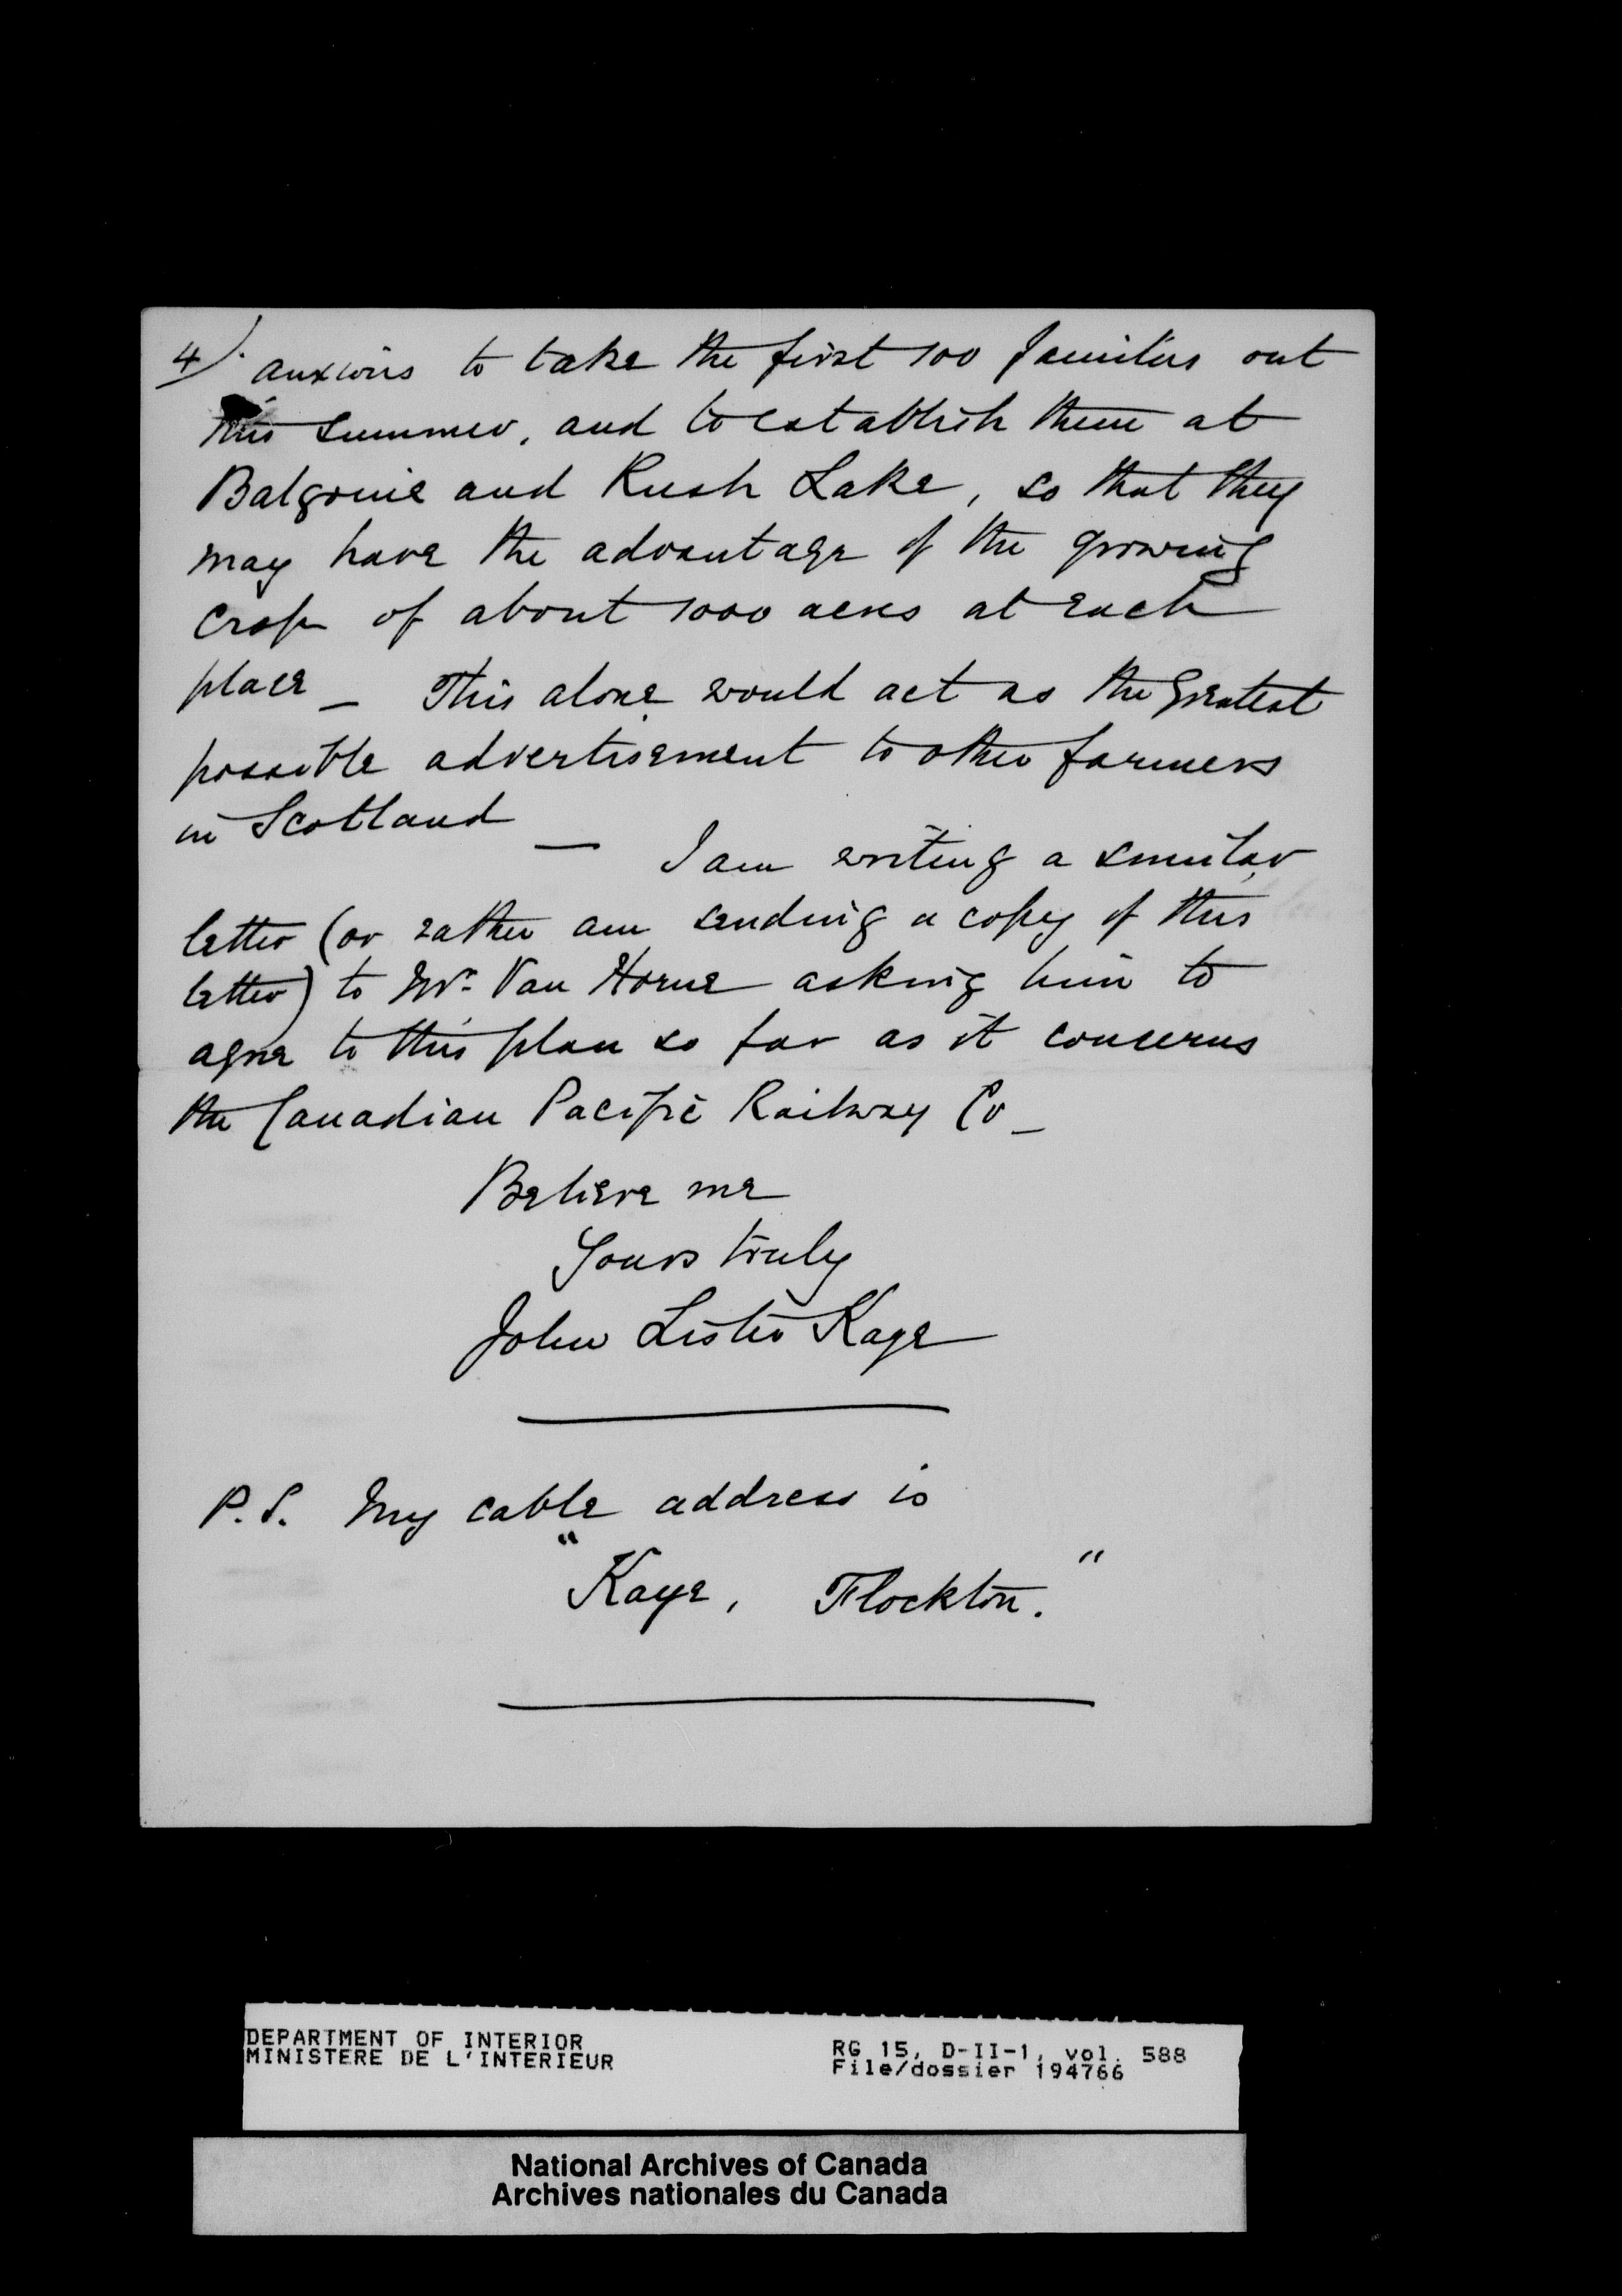 4). anxious to take the first 100 families out
this summer, and to establish them at
Balgonie and Rush Lake, so that they
may have the advantage of the growing
crop of about 1000 acres at each
place _ This alone would act as the greatest
possible advertisement to other farmers
in Scotland —
I am writing a similar
letter (or rather am sending a copy of this
letter) to Mr. Van Horne asking him to
agree to this plan so far as it concerns
the Canadian Pacific Railway Co _
Believe me
Yours truly
John Lister Kaye
P.S. My cable address is
"Kaye, Flockton."
DEPARTMENT OF INTERIOR
MINISTERE DE L'INTERIEUR
RG 15, D-II-1, vol. 588
File/dossier 194766
National Archives of Canada
Archives nationales du Canada